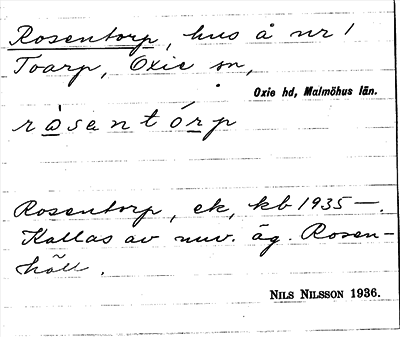 Rosentorp, hus å nr 1
Toarp, Oxie sn,
Oxie hd, Malmöhus län.
ròsentórp
Rosentorp, ek, kb 1935 —.
Kallas av nuv. äg. Rosen-
häll.
NILS NILSSON 1936.